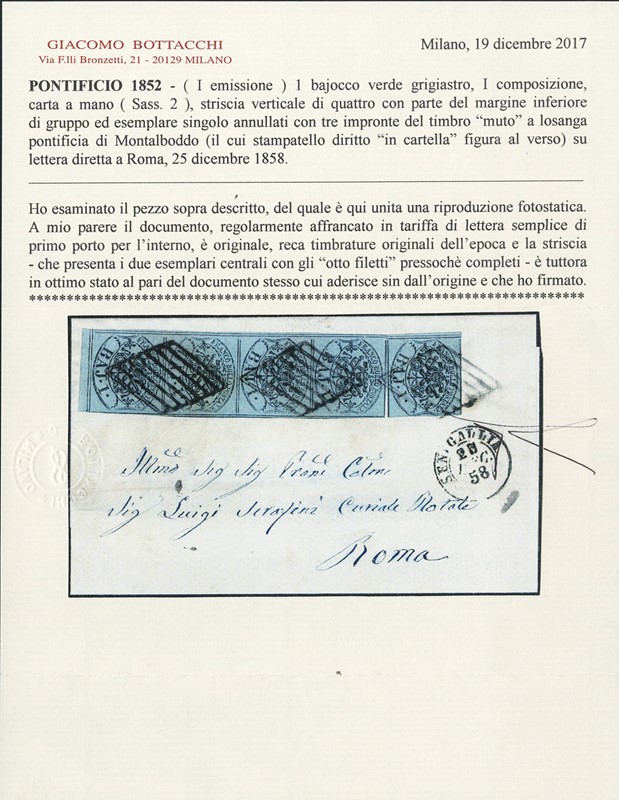 GIACOMO BOTTACCHI
Via F.lli Bronzetti, 21 - 20129 MILANO
Milano, 19 dicembre 2017
PONTIFICIO 1852 - ( I emissione ) 1 bajocco verde grigiastro, I composizione,
carta a mano ( Sass. 2 ), striscia verticale di quattro con parte del margine inferiore
di gruppo ed esemplare singolo annullati con tre impronte del timbro “muto” a losanga
pontificia di Montalboddo (il cui stampatello diritto “in cartella” figura al verso) su
lettera diretta a Roma, 25 dicembre 1858.
Ho esaminato il pezzo sopra descritto, del quale è qui unita una riproduzione fotostatica.
A mio parere il documento, regolarmente affrancato in tariffa di lettera semplice di
primo porto per l’interno, è originale, reca timbrature originali dell’epoca e la striscia
- che presenta i due esemplari centrali con gli “otto filetti” pressochè completi - è tuttora
in ottimo stato al pari del documento stesso cui aderisce sin dall’origine e che ho firmato.
****************************************************************
BAJ. 1
BAJ. 1
BAJ. 1
SEN.GALLIA
58
Illmo Sig Sig Proni Colmo
Sig Luigi Serafini Curiale Rotale
Roma